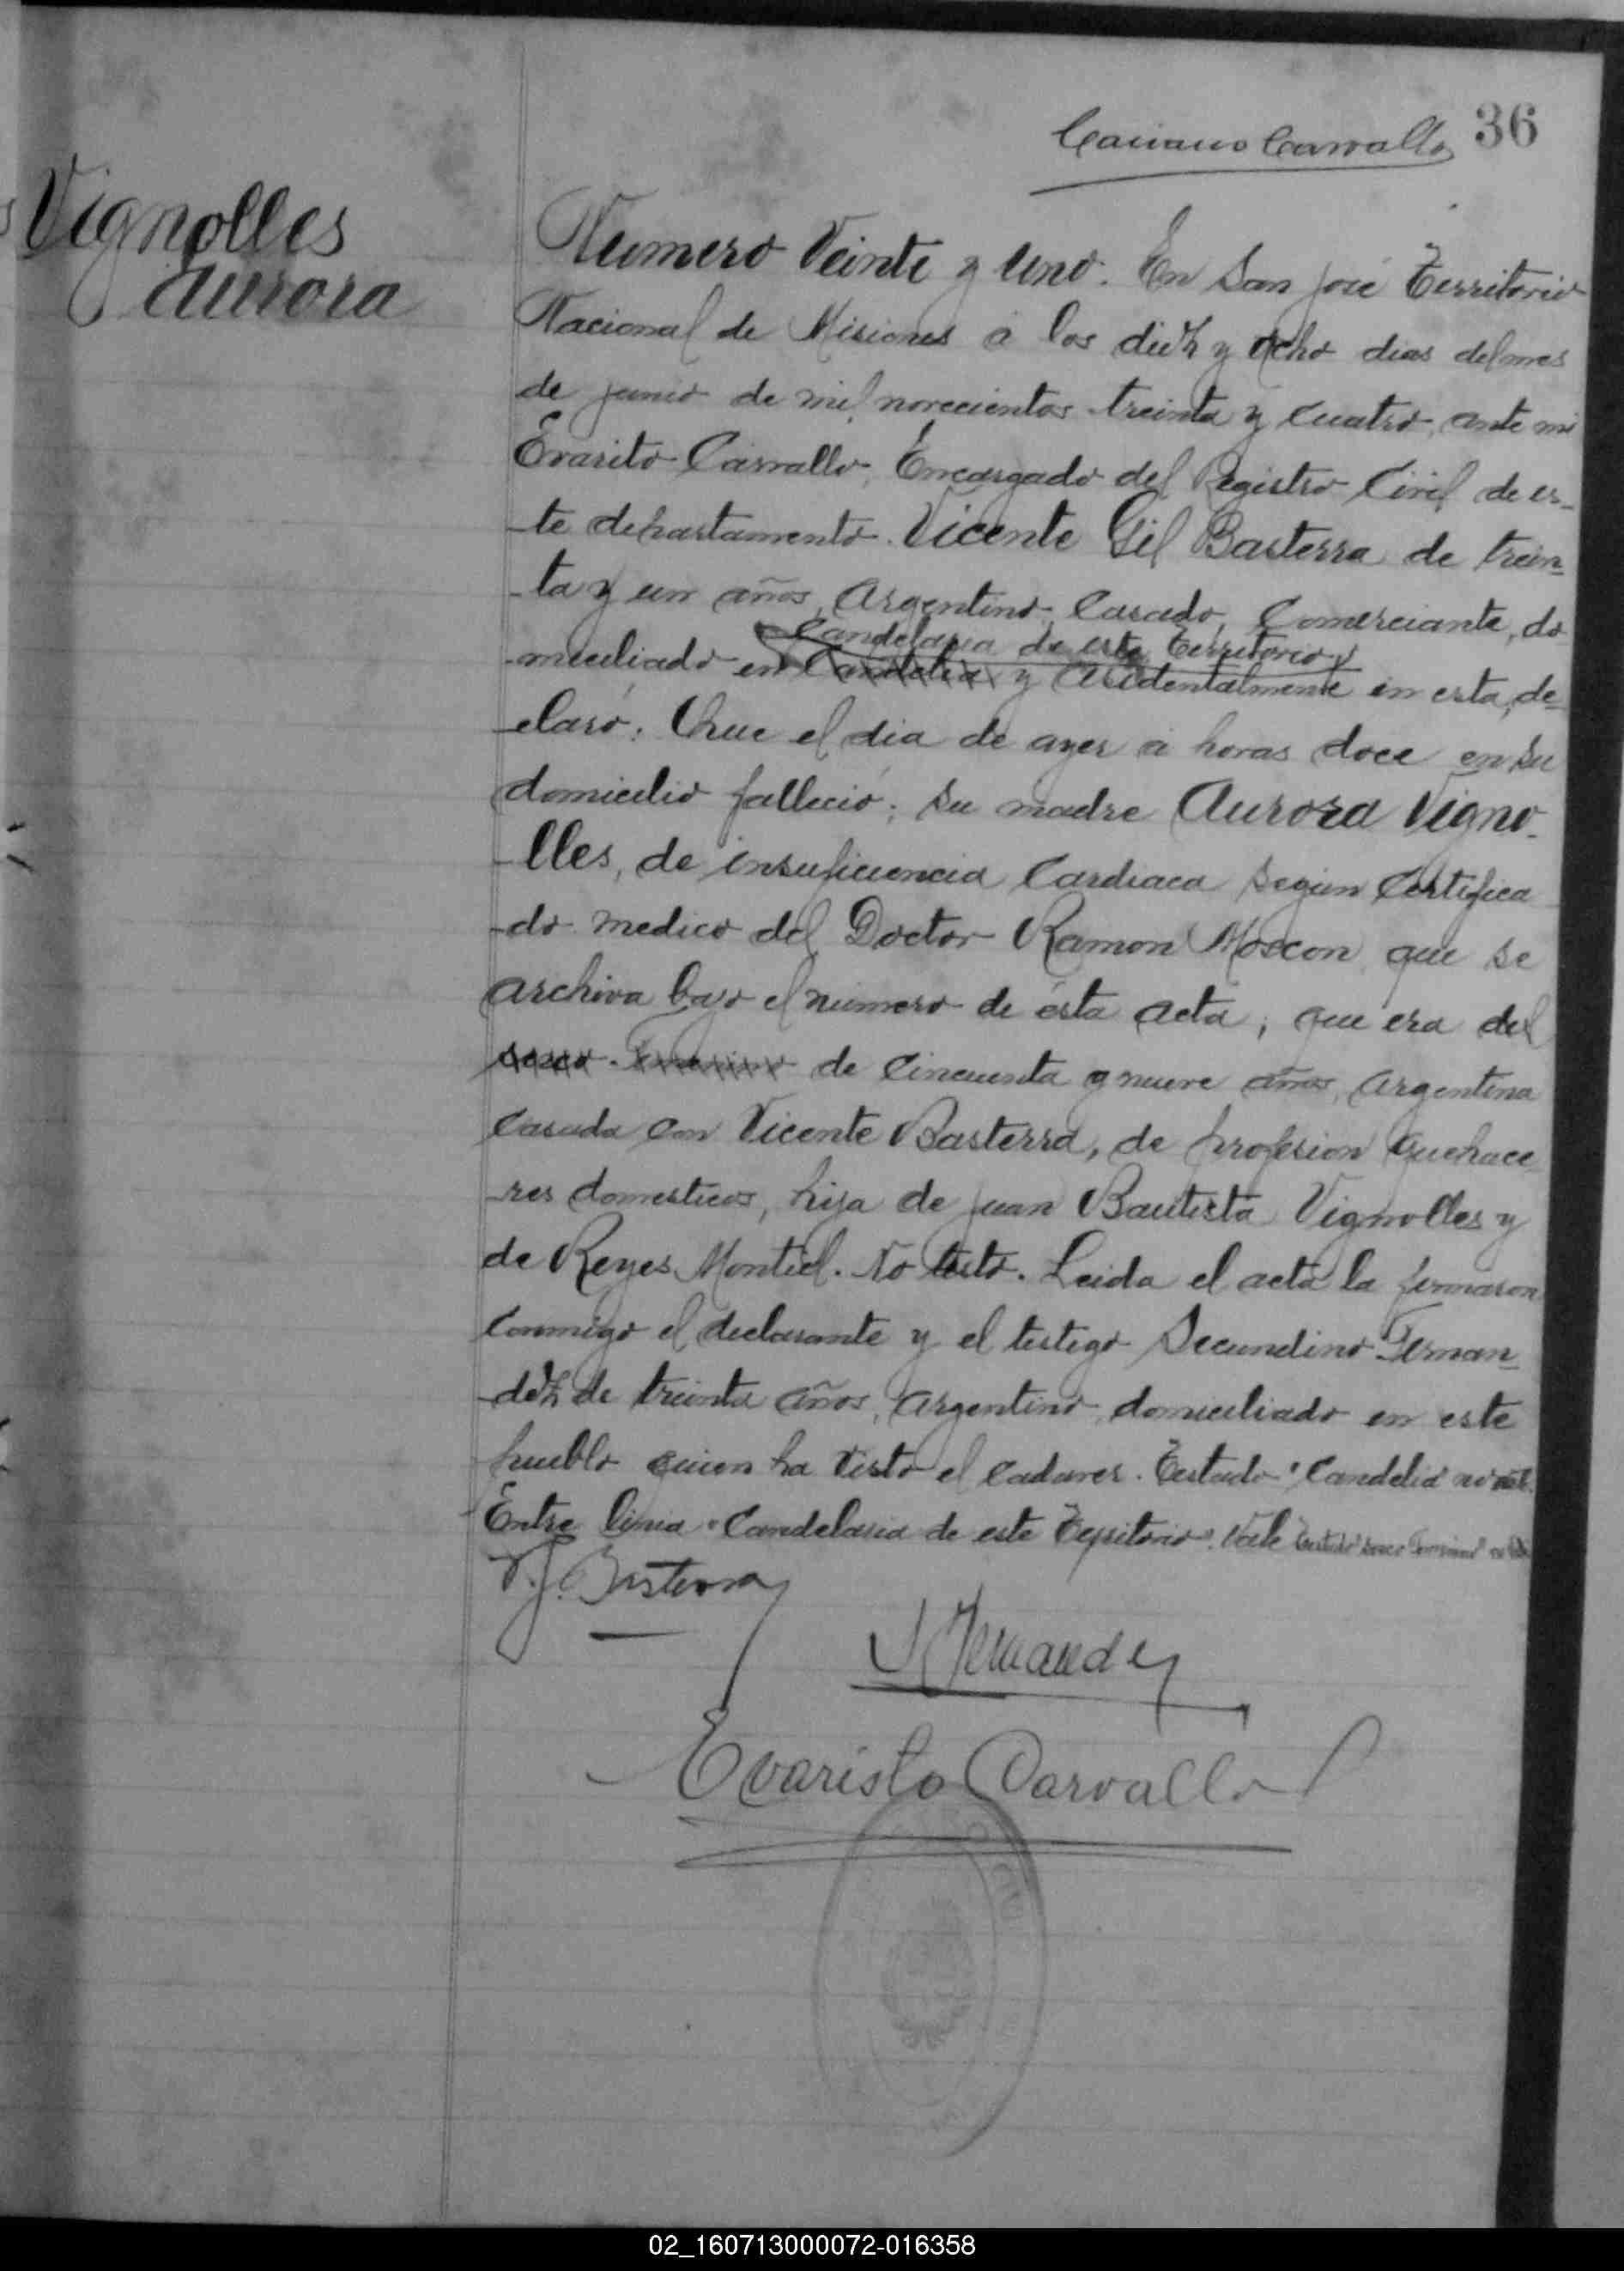 Casiano Carvallo 36
Vignolles
Aurora
Numero Veinte y uno. En San José Territorio
Nacional de Misiones á los diez y ocho dias del mes
de junio de mil novecientos treinta y cuatro, ante mi
Evarito Carvallo, Encargado del Registro Civil de es-
-te departamento. Vicente Gil Basterra de trein-
-ta y un años, Argentino, Casado, Comerciante, do
Candelaria de este Territorio
-miciliado en Candelia y Acidentalmente en esta, de-
-claró: Que el dia de ayer á horas doce en su
domicilio falleció; su madre Aurora Vigno-
-lles, de insuficiencia Cardiaca según Certifica
-do medico del Doctor Ramon Moscon que se
archiva bajo el número de ésta acta; que era del
sexo Femenino de Cincuenta y nueve años, Argentina
Casada con Vicente Basterra, de profesion quehace
-res domesticos, hija de Juan Bautista Vignolles y
de Reyes Montiel. No testó. Leida el acta la firmaron
Conmigo el declarante y el testigo Secundino Fernan-
-dez de treinta años, Argentino, domiciliado en este
pueblo quien ha visto el cadaver. Testado "Candelia" no vale.
Entre linia "Candelaria de este Territorio". Vale Testado "sexo Femenino" no vale
V. G. Basterra
S Fernandez
Evaristo Carvallo
02_160713000072-016358